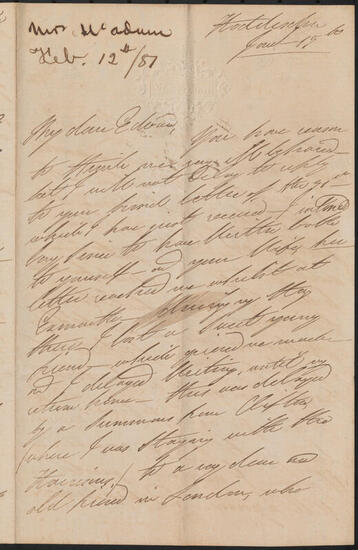 Mrs McAdam
Feb. 12th/87
My dear Edward, You have reason
to think me very
but I will not delay to reply
to your kind letter of the
which I have just received. I intended
my dear to have written both
to yourself — and your Wife, her
letter reached me whilst at
During my stay
there, I lost a sweet young
friend — which grieved me much —
and I delayed writing, until my
return home — this was delayed
by a summons from Clifton
(where I was staying with the
Harrisons,) to a very dear and
old friend in London, who